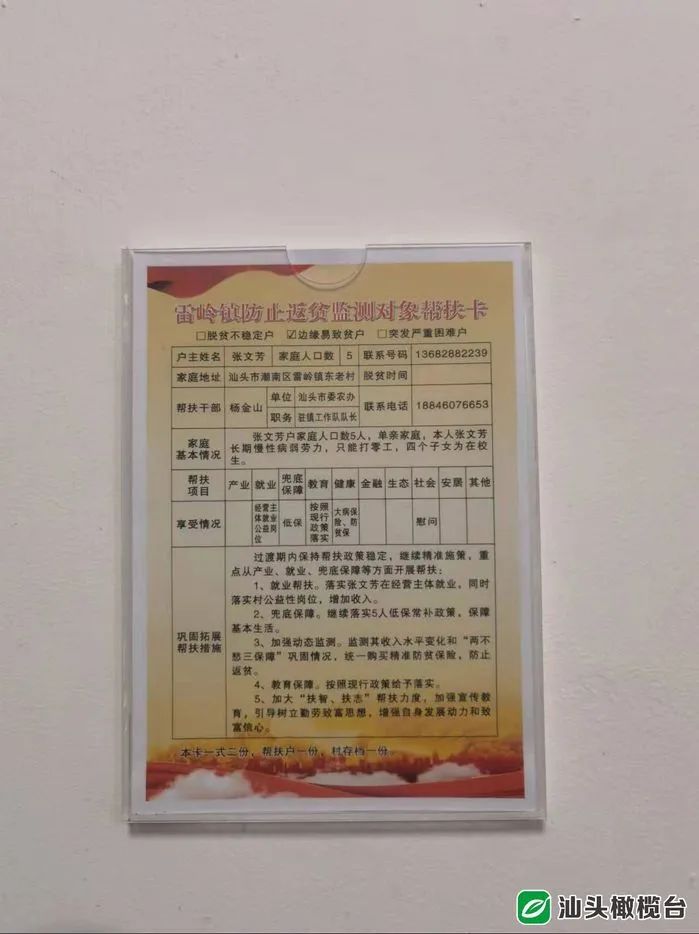 雷岭镇防止返贫监测对象帮扶卡
□脱贫不稳定户 ☑边缘易致贫户 □突发严重困难户
户主姓名 张文芳 家庭人口数 5 联系号码 13682882239
家庭地址 汕头市潮南区雷岭镇东老村 脱贫时间
帮扶干部 杨金山 单位 汕头市委农办 联系电话 18846076653
职务 驻镇工作队队长
家庭基本情况
张文芳户家庭人口数5人，单亲家庭，本人张文芳
长期慢性病弱劳力，只能打零工，四个子女为在校
生。
帮扶项目 产业 就业 兜底保障 教育 健康 金融 生态 社会 安居 其他
享受情况 经营主体就业公益岗位 低保 按照现行政策落实 大病保险、防贫保 慰问
巩固拓展帮扶措施
过渡期内保持帮扶政策稳定，继续精准施策，重
点从产业、就业、兜底保障等方面开展帮扶：
1、就业帮扶。落实张文芳在经营主体就业，同时
落实村公益性岗位，增加收入。
2、兜底保障。继续落实5人低保常补政策，保障
基本生活。
3、加强动态监测。监测其收入水平变化和“两不
愁三保障”巩固情况，统一购买精准防贫保险，防止
返贫。
4、教育保障。按照现行政策给予落实。
5、加大“扶智、扶志”帮扶力度，加强宣传教
育，引导树立勤劳致富思想，增强自身发展动力和致
富信心。
本卡一式二份，帮扶户一份，村存档一份。
汕头橄榄台